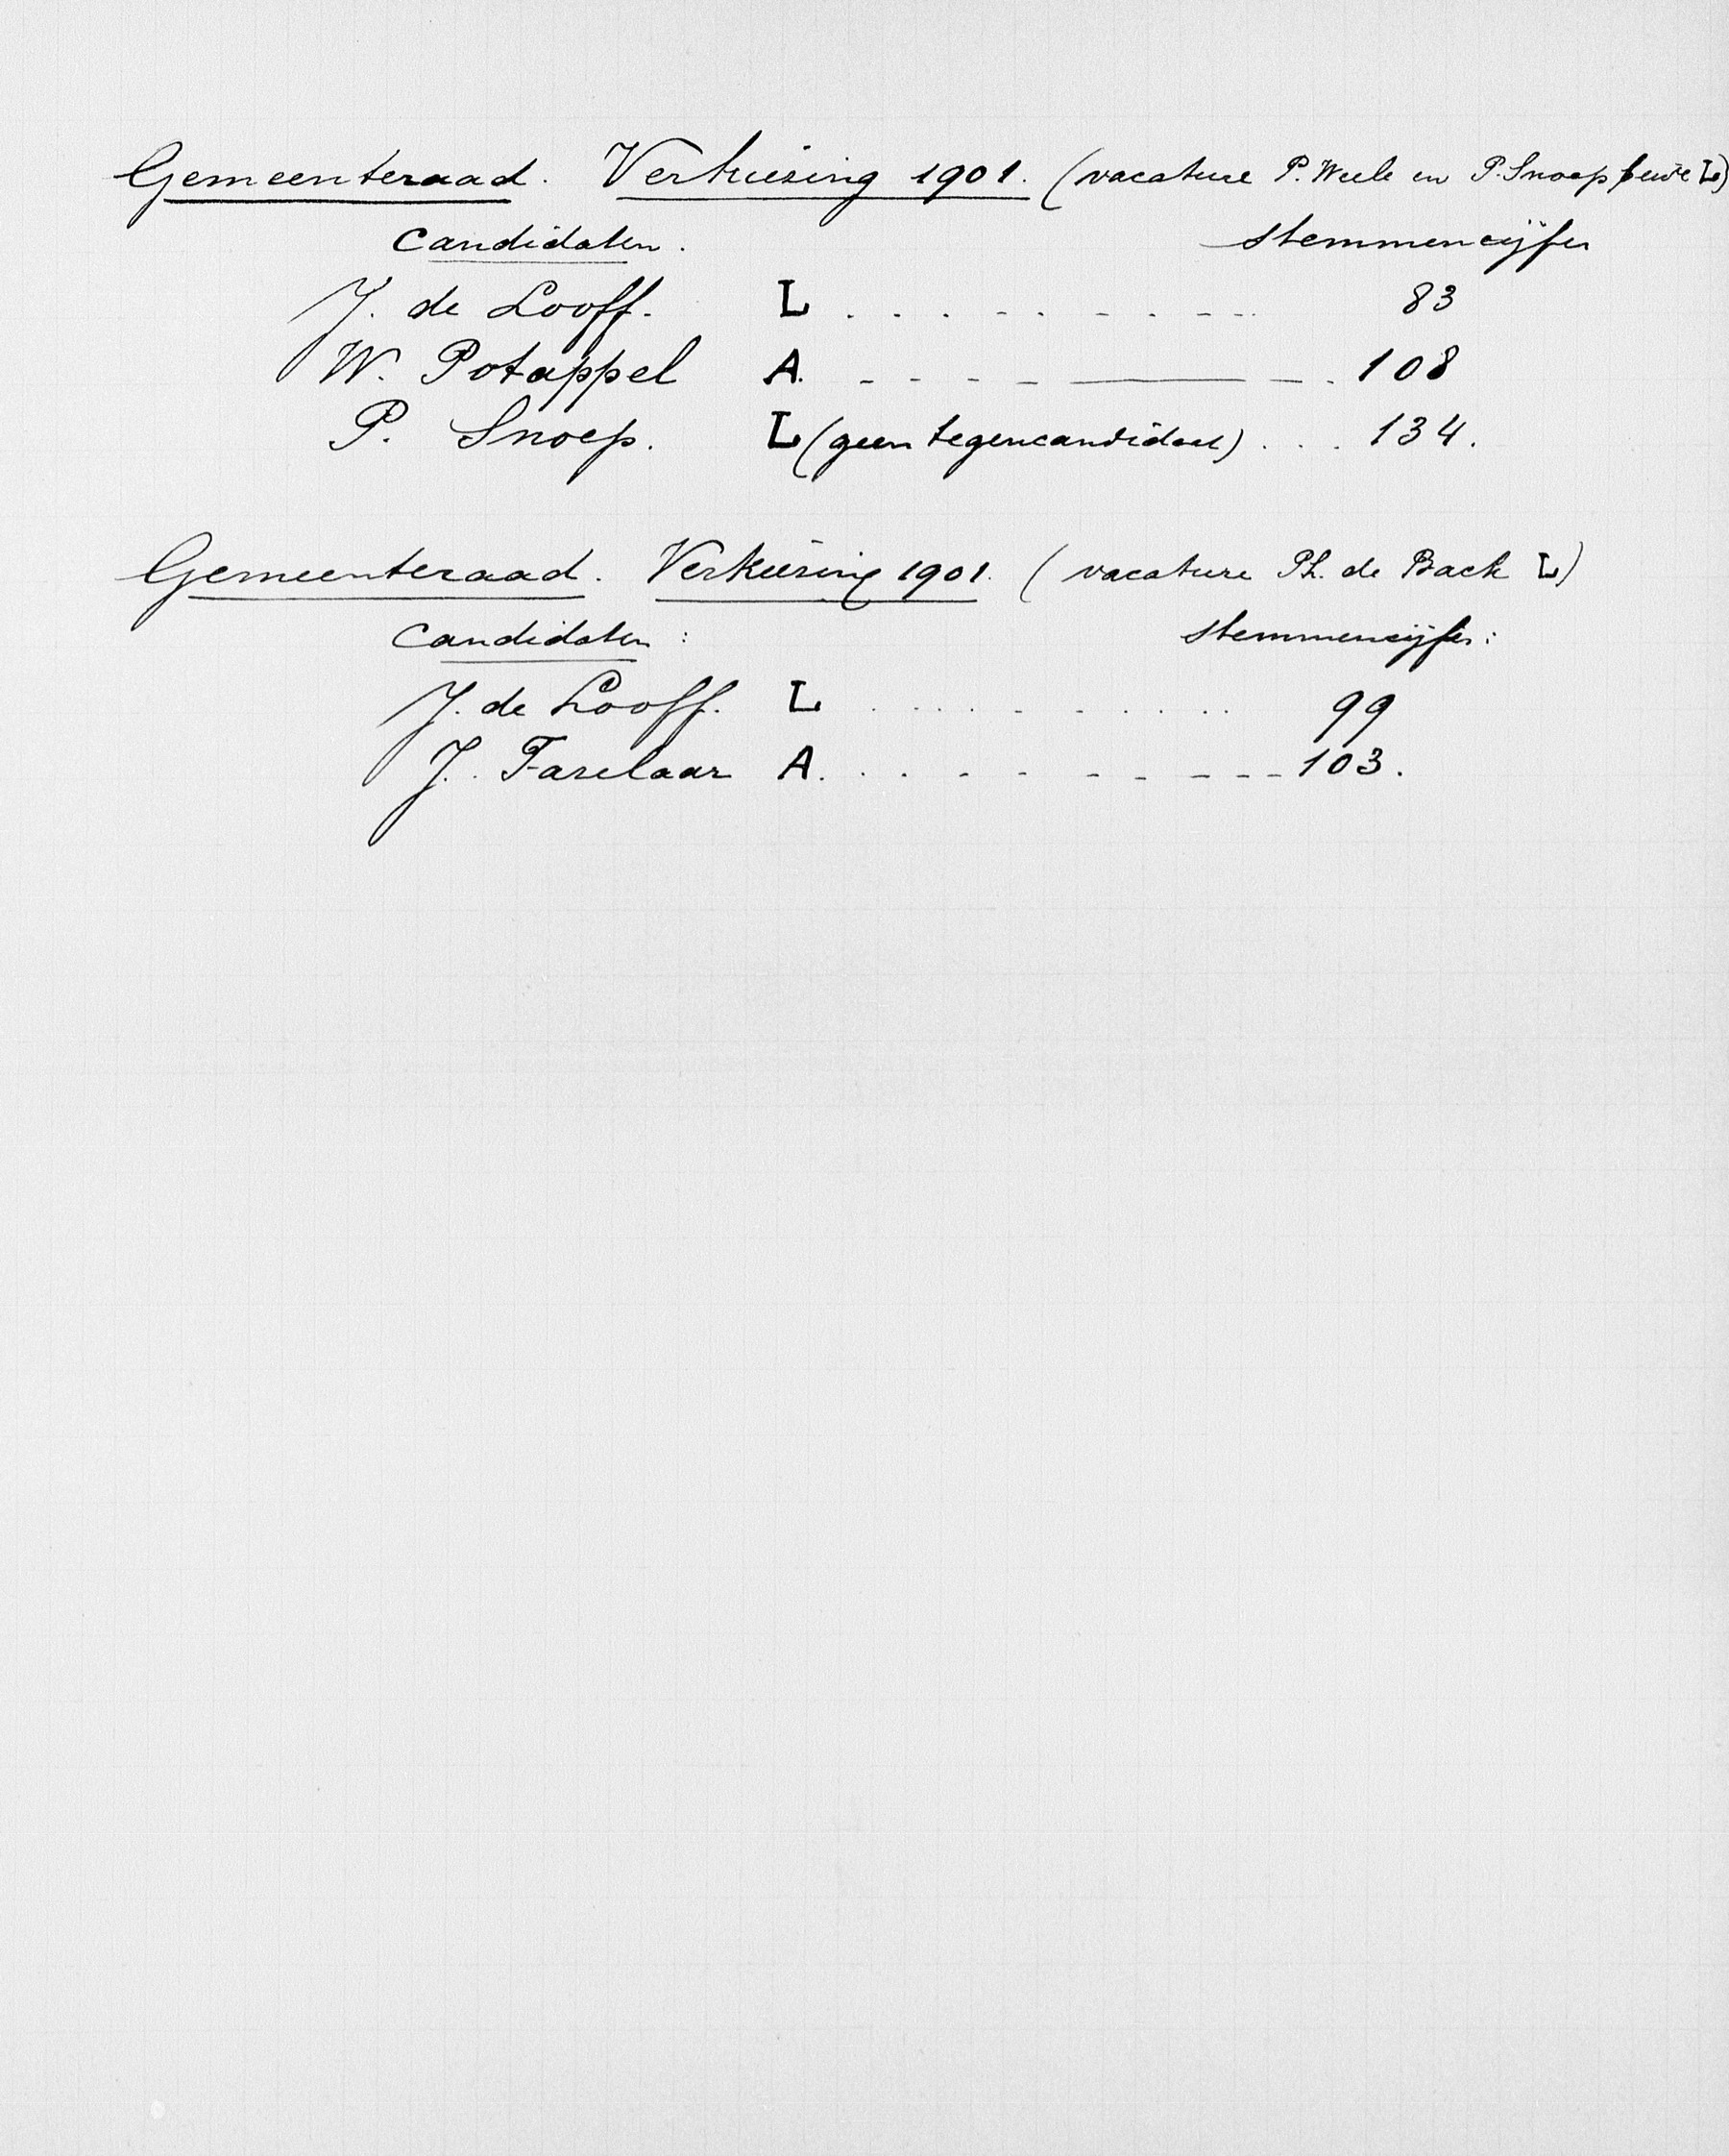 Gemeenteraad. Verkiezing 1901. (vacature P. Weele en P. Snoep beide L)
Candidaten. stemmencijfer
J. de Looff. L . . . . . . . . . 83
W. Potappel A. . . . . . . . . . 108
P. Snoep. L (geen tegencandidaat) . . . 134.
Gemeenteraad. Verkiezing 1901. (vacature Ph. de Back L)
Candidaten: stemmencijfer:
J. de Looff. L . . . . . . . . . 99
J. Farelaar A. . . . . . . . . . 103.